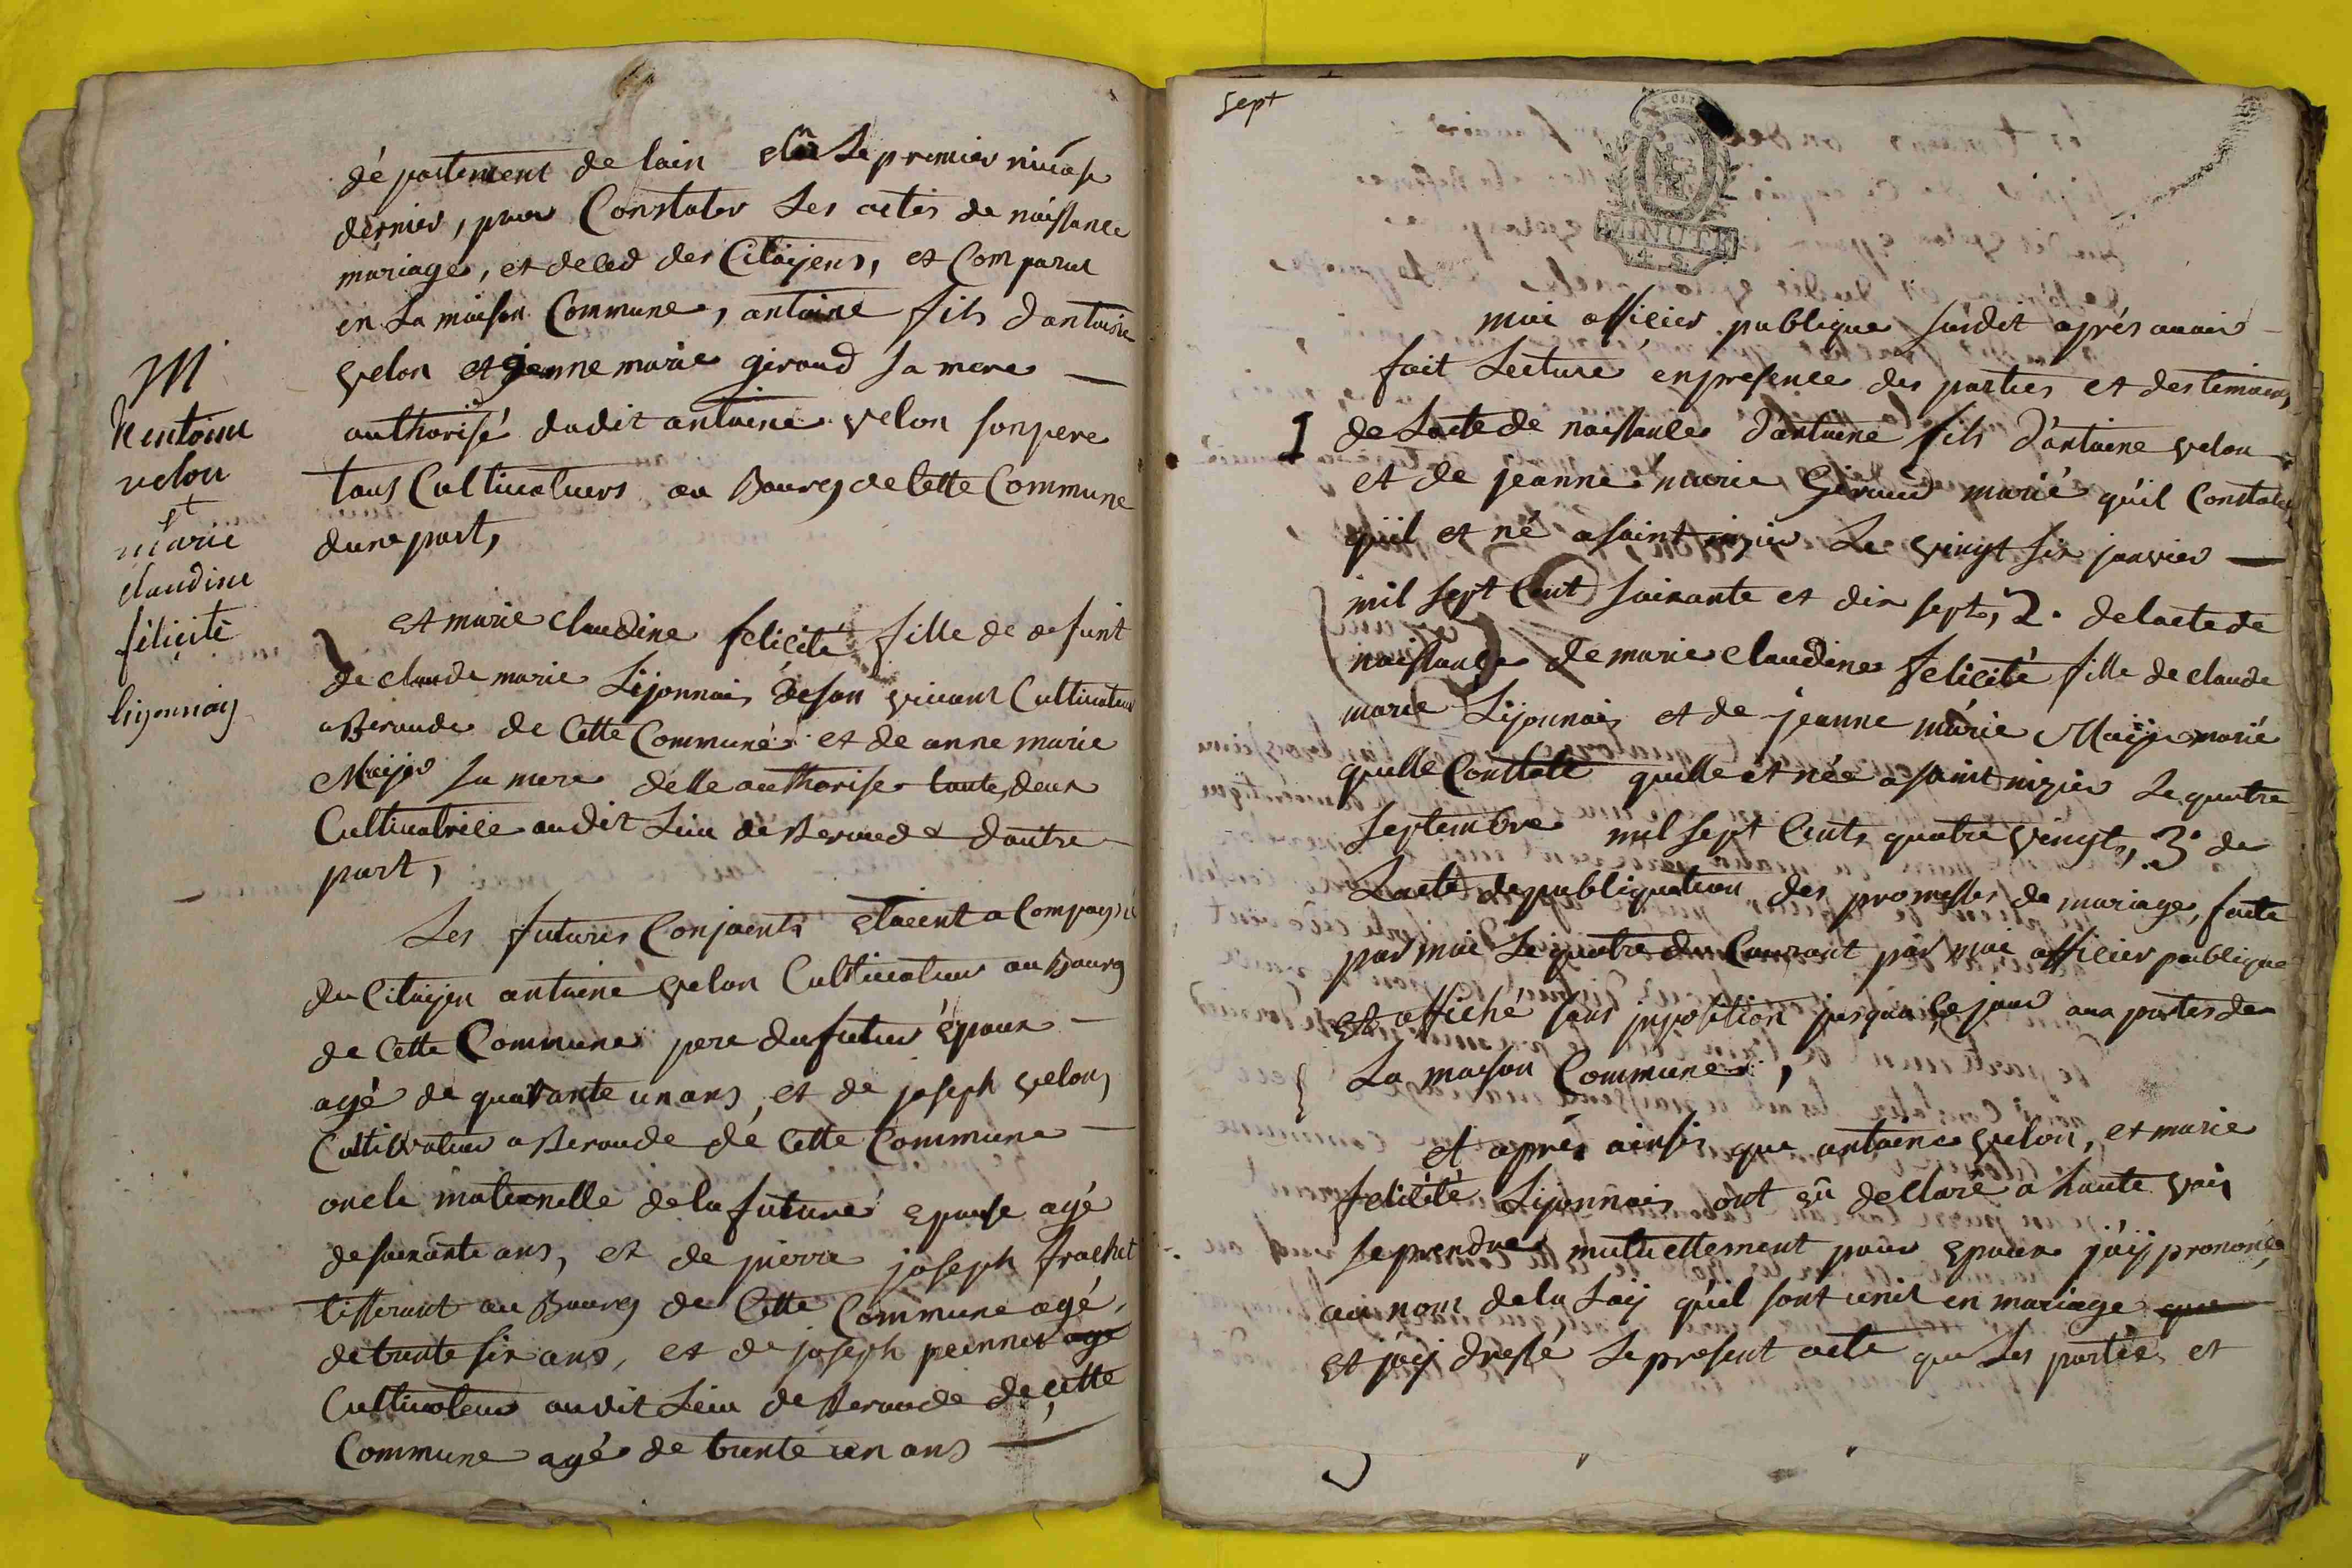 département de lain elû Le premier nivôse
dernier, pour Constater Les actes de naissance
mariages, et deced des Citoÿens, et Comparut
en La maison Commune, antoine fils dantoine
velon et jeanne marie giraud sa mere
authorisé dudit antoine velon son pere
tous Cultivateurs au Bourg de Cette Commune
dune part,
M
d'entoine
velon
et
marie
claudine
félicité
liyonnois
et marie claudine felicité fille de defunt
de claude marie Lijonnois de son vivant Cultivateur
a Beroude de Cette Commune et de anne marie
Maÿer sa mere delle authorise toute deux
Cultivatrice audit Lieu de Beroude d'autre
part,
Les futures Conjoints etoient a Compagné
du Citoÿen antoine velon Cultivateur au Bourg
de Cette Commune pere du futur époux
agé de quarante un ans, et de joseph velon
Cultivateur a Beroude de Cette Commune
oncle maternelle de la future epouse agé
de soixante ans, et de pierre joseph frachet
tisserant au Bourg de Cette Commune agé
de trente six ans, et de joseph peinnet agé
Cultivateur audit Lieu de Beroude de Cette
Commune agé de trente un ans
sept
MINUTE
4. S.
moi officier publique susdit après avoir
fait Lecture en presence des parties et des temoins
1 de Lacte de naissance d'antoine fils d'antoine velon
et de jeanne marie Giraud marié qu'il Constate
qu'il et né a saint nizier Le vingt six janvier
mil sept Cent soixante et dix sept, 2. de lacte de
naissance de marie claudine felicité fille de claude
marie Lijonnois et de jeanne marie Maÿer marié
quelle Constate quelle et née a saint nizier Le quatre
septembre mil sept Cents quatre vingts, 3. de
Lacte de publiquation des promesses de mariage, faite
par moi Le quatre du Courant par moi officier publique
et affiché sans jnposition jusqua Ce jour aux portes de
La maison Commune,
et aprés ainsi que antoine velon, et marie
felicité Lijonnois ont eû declaré a haute voix
se prendre mutuellement pour epoux j'aÿ prononcé
au nom de la Loÿ qu'il sont unit en mariage que
et j'aÿ dressé Le present acte que Les parties et